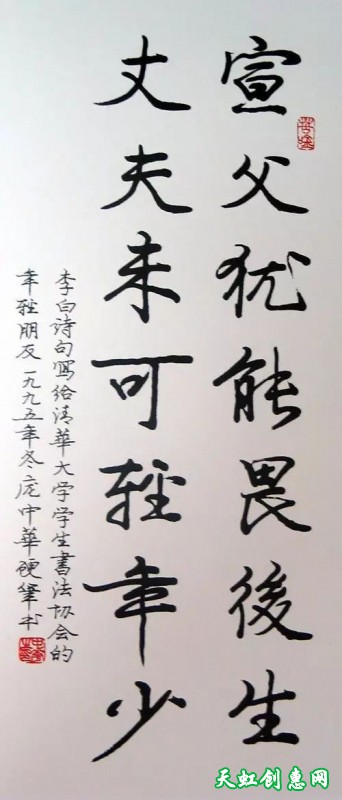 宣父犹能畏後生
丈夫未可轻年少
李白诗句寫给清華大学学生書法协会的
年轻朋友一九九五年冬庞中華硬筆书
天虹创惠网